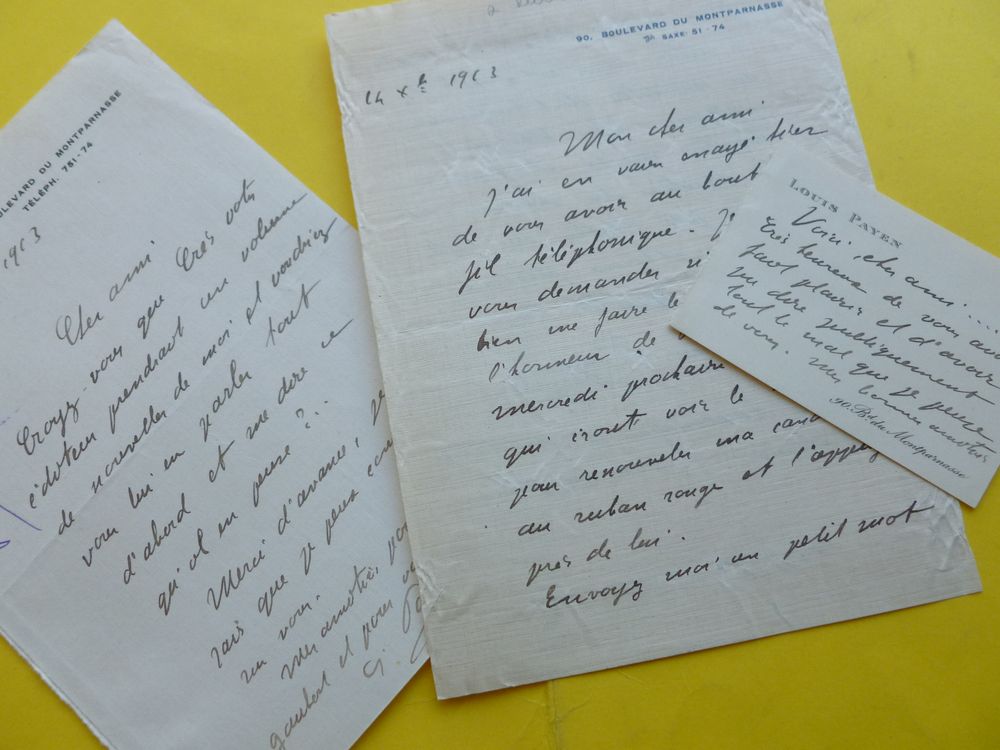 LEVARD DU MONTPARNASSE
TÉLÉPH. 751-74
1913
Cher ami
Croyez-vous que votre
éditeur prendrait un volume
de nouvelles de moi et voudriez
vous lui en parler tout
d'abord et me dire ce
qu'il en pense ?..
Merci d'avance, je
sais que je peux
sur vous.
Mes amitiés, pou
et pour vo
G.
90, BOULEVARD DU MONTPARNASSE
SAXE 51-74
14 Xbre 1913
Mon cher ami
J'ai en vain essayé hier
de vous avoir au bout
fil téléphonique. J
vous demander si
bien me faire le
l'honneur de
mercredi prochain
qui iront voir le
pour renouveler ma cand
au ruban rouge et l'appuy
près de lui.
Envoyez moi un petit mot
LOUIS PAYEN
Voici, cher ami....
Très heureux de vous avoi
fait plaisir et d'avoir
pu dire publiquement
tout le mal que je pense
de vous.
Mes bonnes amitiés
90, Bd du Montparnasse